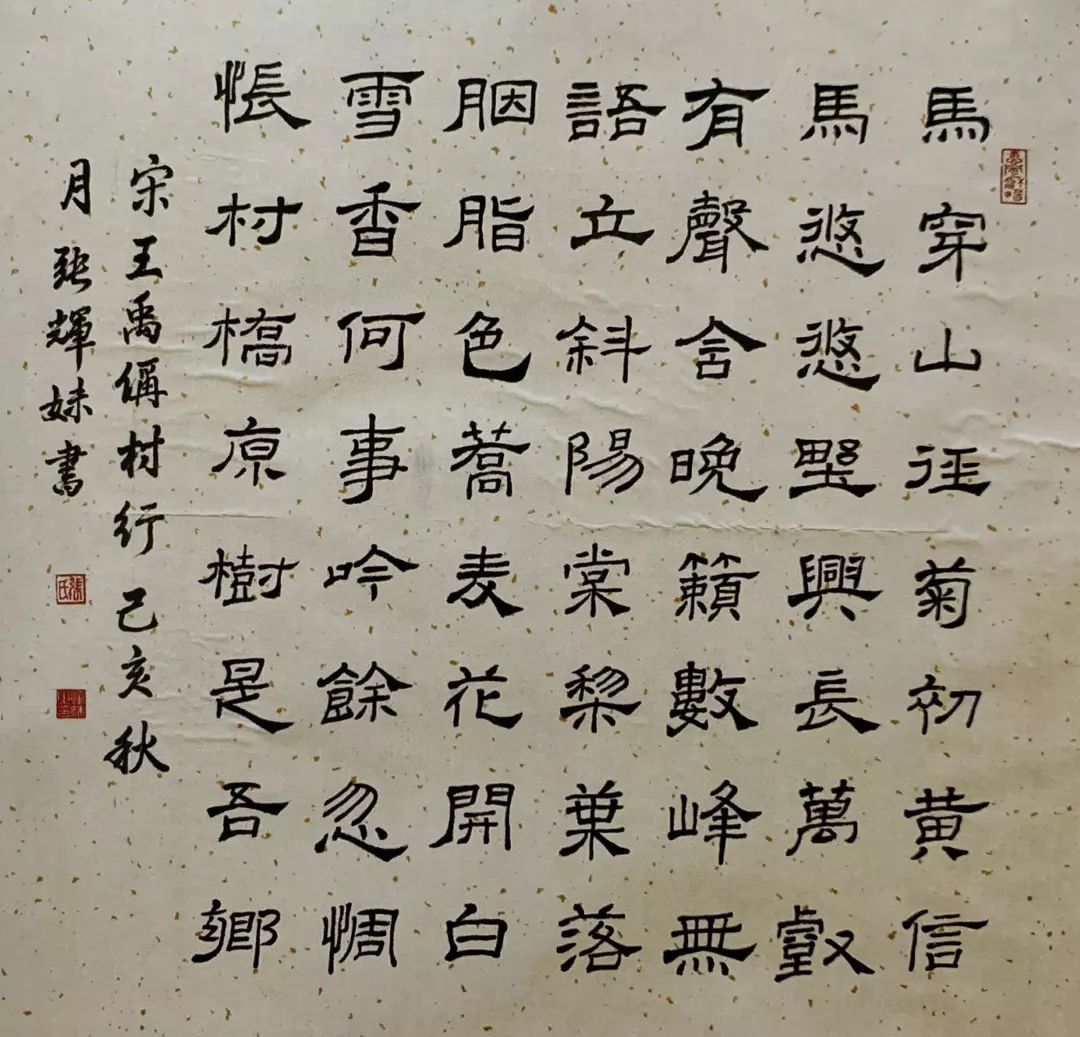 馬穿山徑菊初黄信
馬悠悠野興長萬壑
有聲含晚籟數峰無
語立斜陽棠梨葉落
胭脂色蕎麦花開白
雪香何事吟餘忽惆
悵村橋原樹是吾鄉
宋王禹偁村行己亥秋
月張輝妹書
張氏